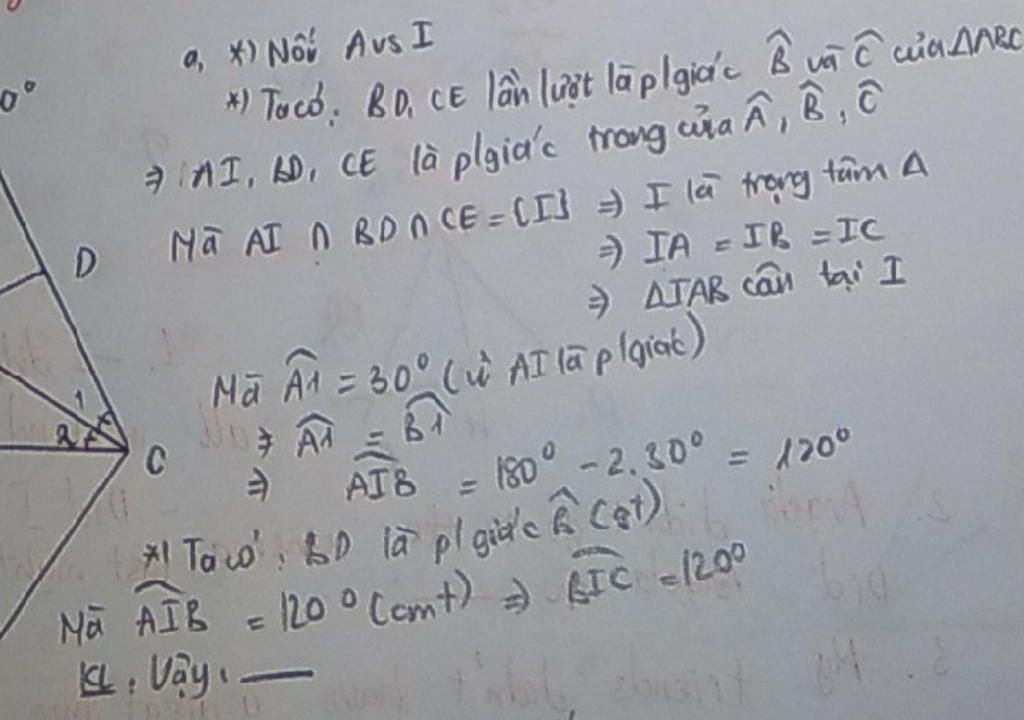 0°
a, *) Nối A vs I
*) Ta có: BD, CE lần lượt là p/giác B̂ và Ĉ của ΔABC
⇒ AI, BD, CE là p/giác trong của Â, B̂, Ĉ
Mà AI ∩ BD ∩ CE = {I} ⇒ I là trọng tâm Δ
⇒ IA = IB = IC
D
⇒ ΔIAB cân tại I
Mà Â1 = 30° (vì AI là p/giác)
1
⇒ Â1 = B̂1
2
C
⇒ AIB̂ = 180° - 2.30° = 120°
*) Ta có: BD là p/giác B̂ (gt)
Mà AIB̂ = 120° (cmt) ⇒ BIĈ = 120°
KL: Vậy: —